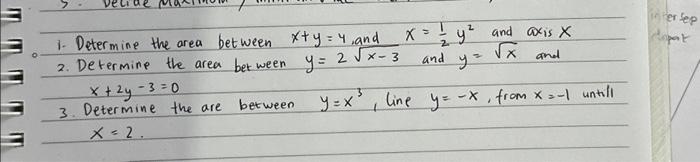 5. Decide Maximum /
1. Determine the area between x+y=4 and x = 1/2 y² and axis X
2. Determine the area between y = 2√x-3 and y = √x and
x + 2y - 3 = 0
3. Determine the are between y = x³, line y = -x, from x = -1 untill
x = 2.